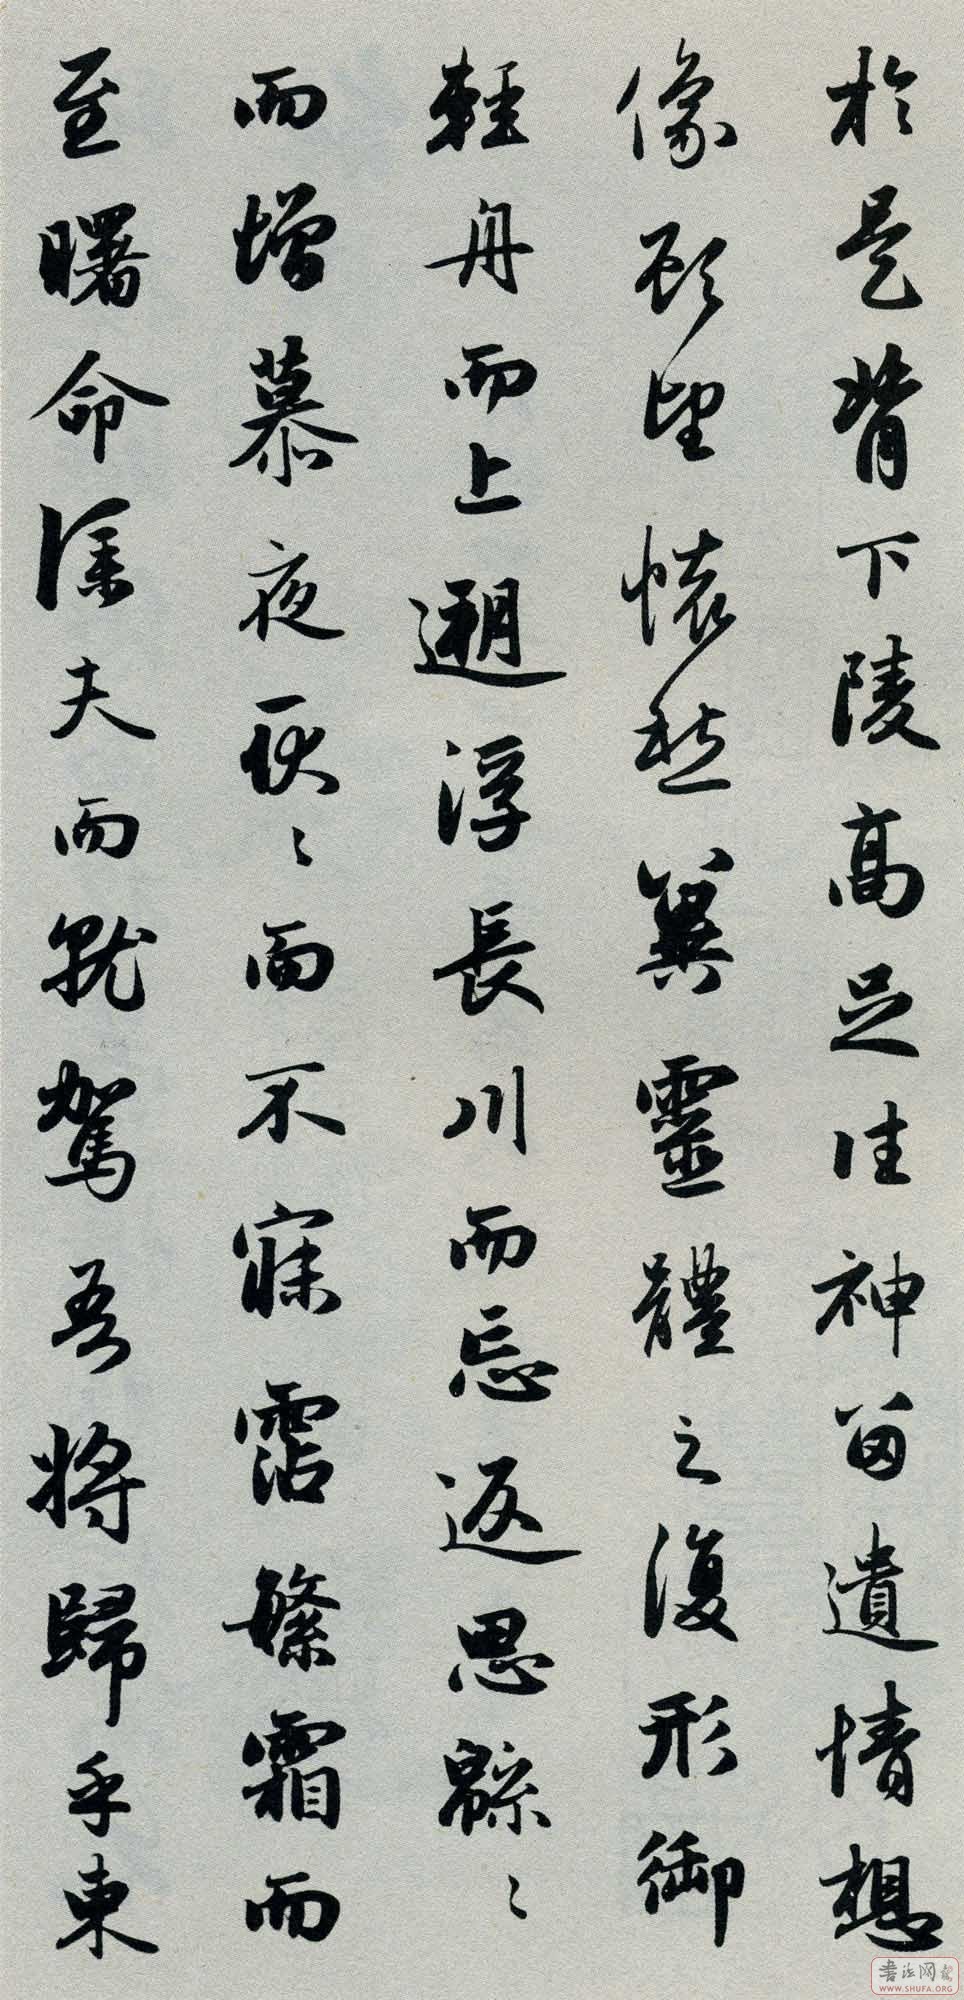 於是背下陵高足往神留遺情想
像顧望懷愁冀靈體之復形御
輕舟而上遡浮長川而忘返思緜〻
而增慕夜耿〻而不寐霑繁霜而
至曙命僕夫而就駕吾將歸乎東
书法网
WWW.SHUFA.ORG